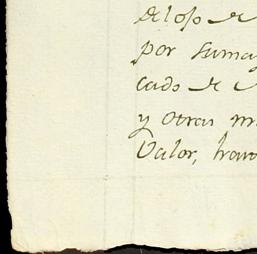 de los de
por suma
cado de
y otras m
Valor, hav